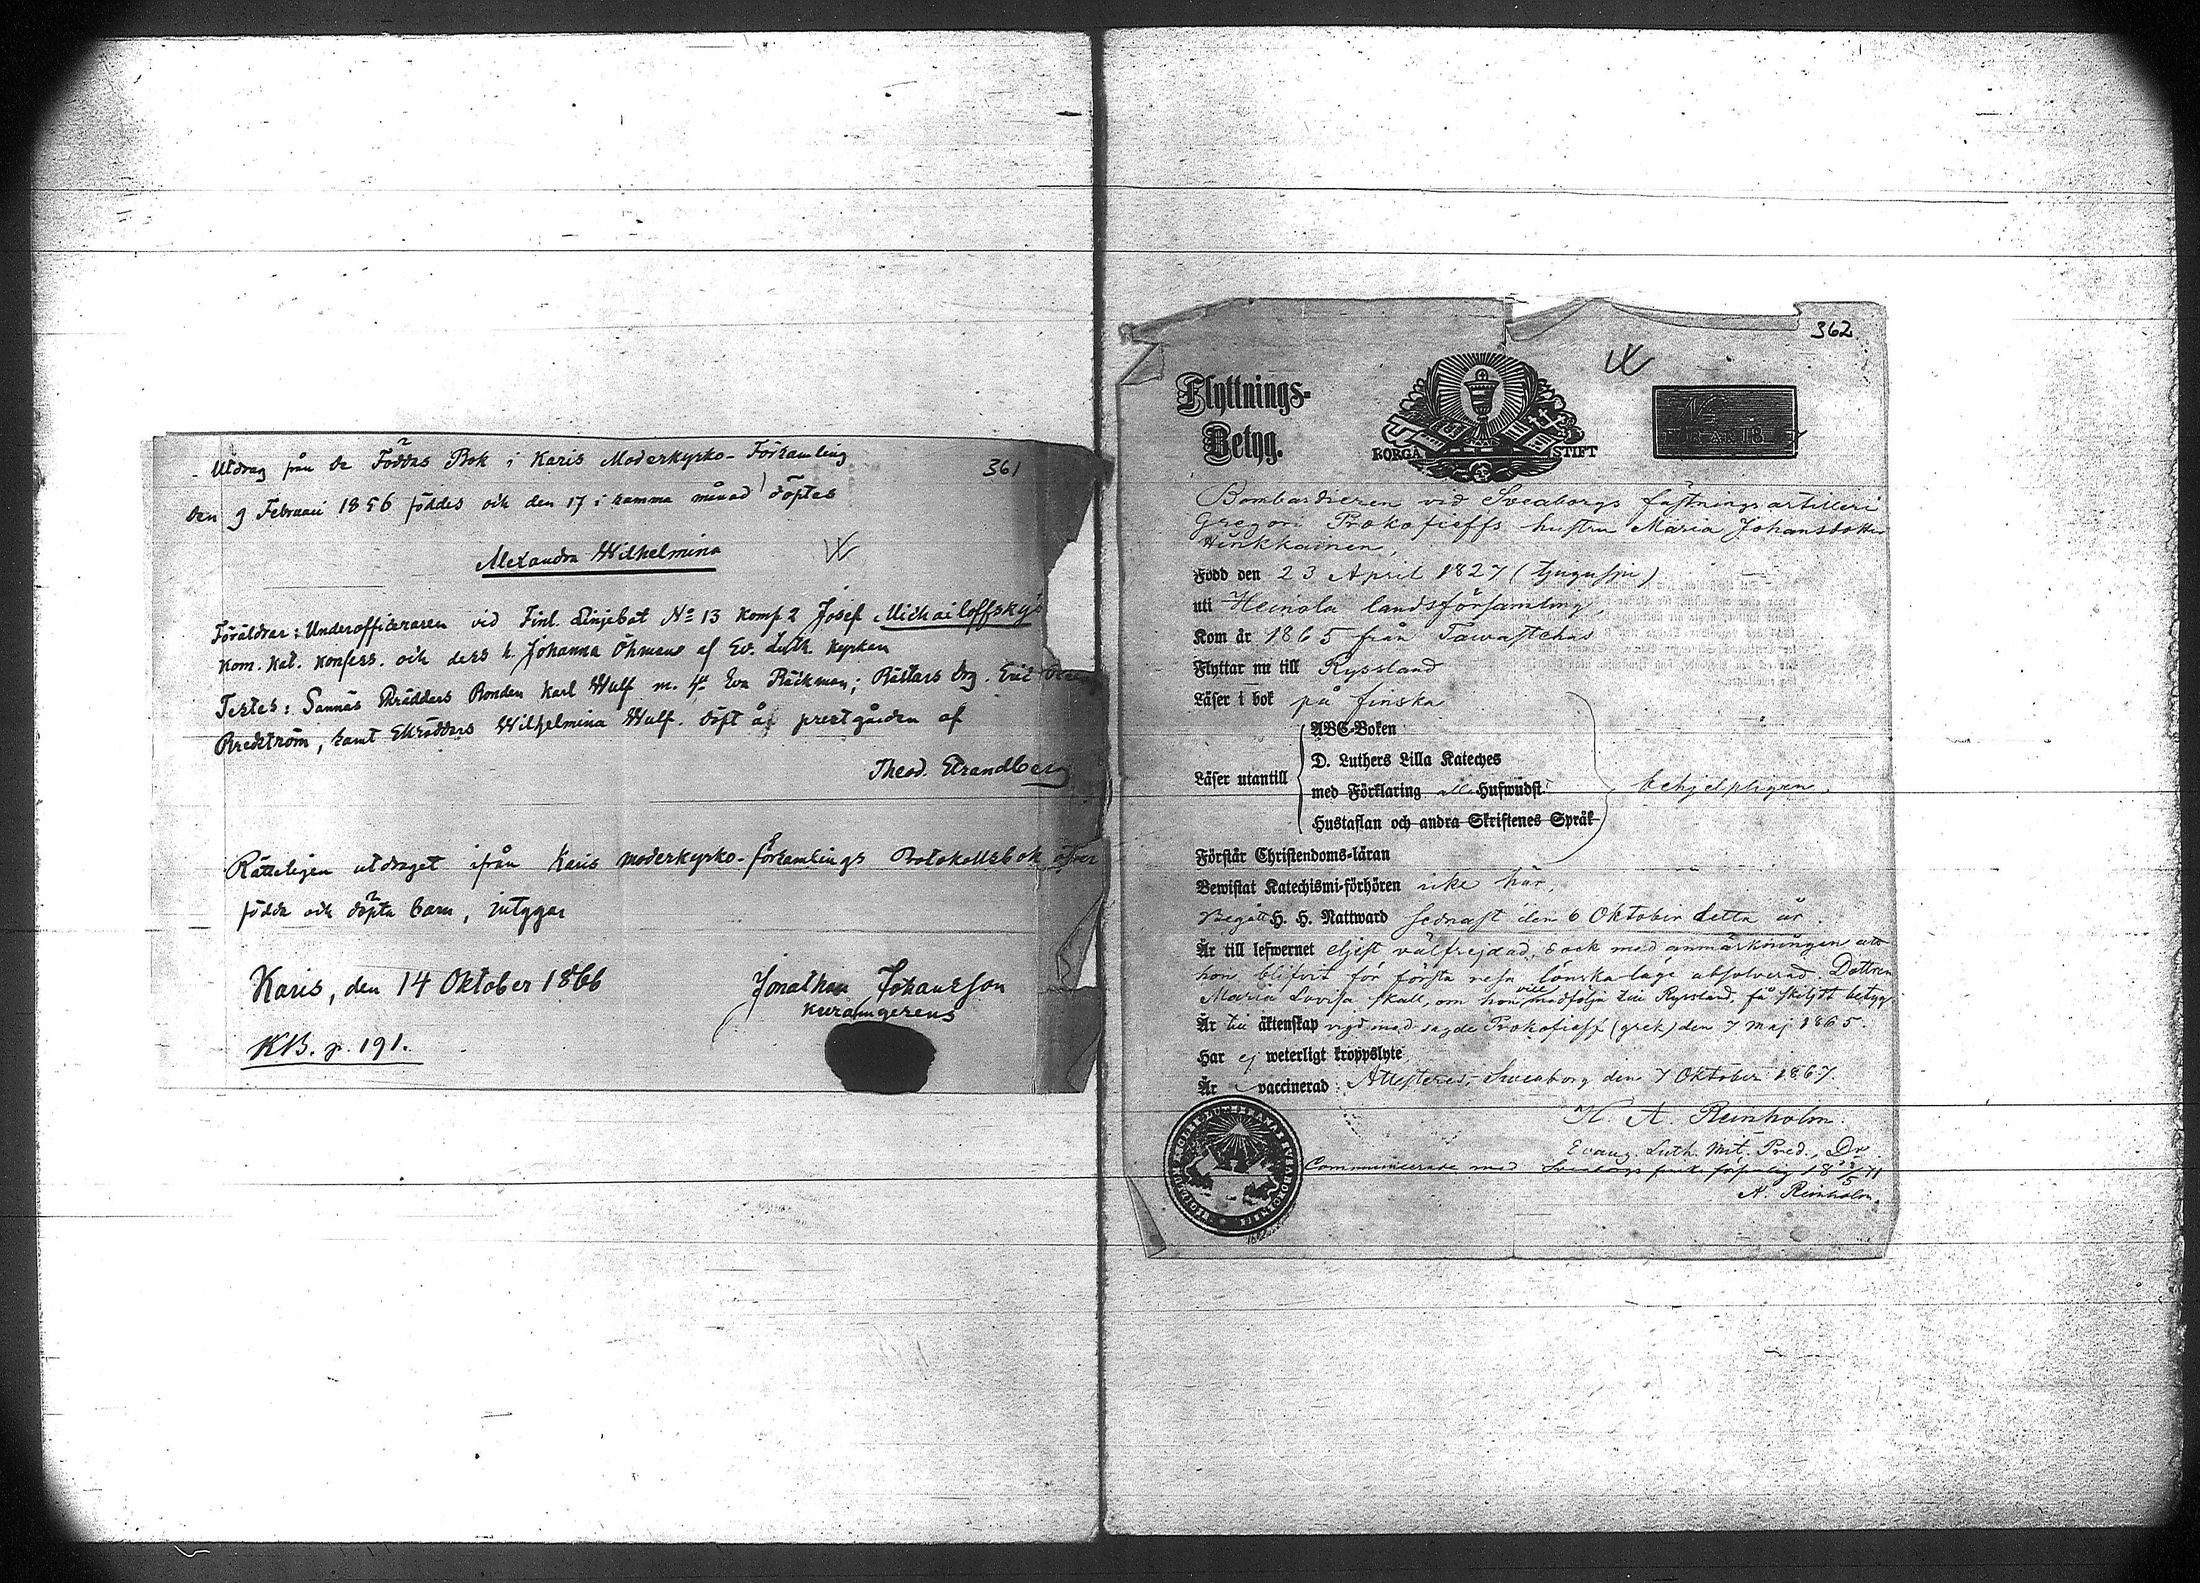 361
Utdrag från de Föddas Bok i Karis Moderkyrko-Församling
den 9 Februari 1856 föddes och den 17 i samma månad döptes
Alexandra Wilhelmina
Föräldrar: Underofficeraren vid Finl. Linjebat No 13 Komp. 2 Josef Michailoffsky's
Rom. Kat. Konfess. och dess h. Johanna Öhman af Ev. Luth. Kyrkan
Testes: Sannäs Skräddars Bonden Karl Wulf m. h. Eva Bäckman; Bästars Drg. Eric
Bredström, samt Skräddars Wilhelmina Wulf. döpt å prestgården af
Theod. Strandberg
Rätteligen utdraget ifrån Karis moderkyrko-församlings Protokollsbok öfver
födda och döpta barn, intygar
Karis, den 14 Oktober 1866
Jonathan Johansson
KB. p. 191.
362.
Flyttnings-
Betyg.
BORGÅ STIFT
No
FÖR ÅR 18
Bombardieren vid Sveaborgs fästningsartilleri
Gregori Prokofieffs hustru Maria Johansdotter
Hinkkainen,
Född den 23 April 1827 (tjugusju)
uti Heinola landsförsamling,
Kom år 1865 från Tawastehus
Flyttar nu till Ryssland
Läser i bok på finska
ABC-Boken
D. Luthers Lilla Kateches
Läser utantill
med Förklaring alla Hufwudst.
behjelpligen,
Hustaflan och andra Skriftenes Språk
Förstår Christendoms-läran
Bewistat Katechismi-förhören icke här,
Begått H. H. Nattward sednast den 6 Oktober detta år.
Är till lefwernet eljest välfrejdad, dock med anmärkningen att
hon blifvit för första resa lönska-läge absolverad. Dottren
Maria Lovisa skall, om hon vill medfölja till Ryssland, få skiljdt betyg
Är till äktenskap vigd med sagde Prokofieff (grek) den 7 Maj 1865.
Har ej weterligt kroppslyte
Är vaccinerad: Attesteres, Sveaborg den 7 Oktober 1867.
H. A. Reinholm.
Evang. Luth. Mil. Pred., Dr
Communicerade med Sveaborgs finska församling 18
A. Reinholm.